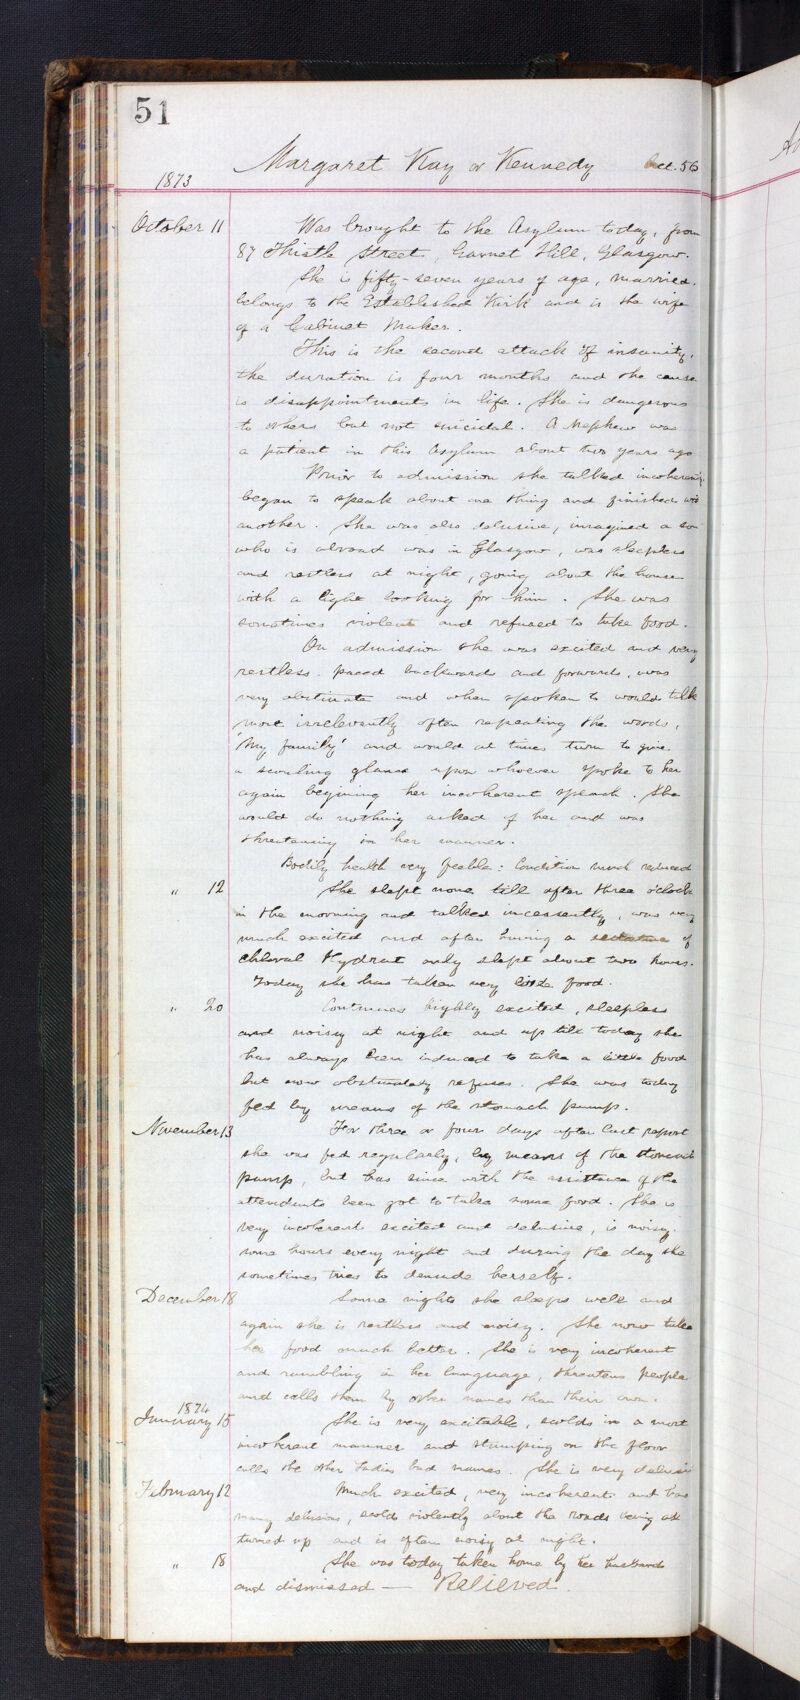 51
Margaret Kay or Kennedy Aet. 56
1873
October 11 Was brought to the Asylum today, from
87 Thistle Street, Garnet Hill, Glasgow.
She is fifty-seven years of age, married,
belongs to the Established Kirk and is the wife
of a Cabinet Maker.
This is the second attack of insanity,
the duration is four months and the cause
is disappointments in life. She is dangerous
to others but not suicidal. A nephew was
a patient in this Asylum about two years ago
Prior to admission she talked incoherently
began to speak about one thing and finished with
another. She was also delusive, imagined a son
who is abroad was in Glasgow, was sleepless
and restless at night, going about the house
with a light looking for him. She was
sometimes violent and refused to take food.
On admission she was excited and very
restless. paced backwards and forwards, was
very obstinate and when spoken to would talk
most irrelevantly often repeating the words,
'My family' and would at times turn to give
a scowling glance upon whoever spoke to her
again begining her incoherent speech. She
would do nothing asked of her and was
threatening in her manner.
Bodily health very feeble: Condition much reduced
" 12 She slept none till after three o'clock
in the morning and talked incessantly, was very
much excited and after having a sedative of
Chloral Hydrat only slept about two hours.
Today she has taken very little food.
" 20 Continues highly excited, sleepless
and noisy at night and up till today she
has always been induced to take a little food
but now obstinately refuses. She was today
fed by means of the stomach pump.
November 13 For three or four days after last report
she was fed regularly, by means of the stomach
pump, but has since with the assistance of the
attendants been got to take some food. She is
very incoherent excited and delusive, is noisy
some hours every night and during the day she
sometimes tries to denude herself.
December 18 Some nights she sleeps well and
again she is restless and noisy. She now takes
her food much better. She is very incoherent
and rambling in her language, threatens people
and calls them by other names than their own.
1874
January 15 She is very excitable, scolds in a most
incoherent manner and stamping on the floor
calls the other Ladies bad names. She is very delusive
February 12 Much excited, very incoherent and has
many delusions, scolds violently about the roads being all
turned up and is often noisy at night.
" 18 She was today taken home by her husband
and dismissed — Relieved.